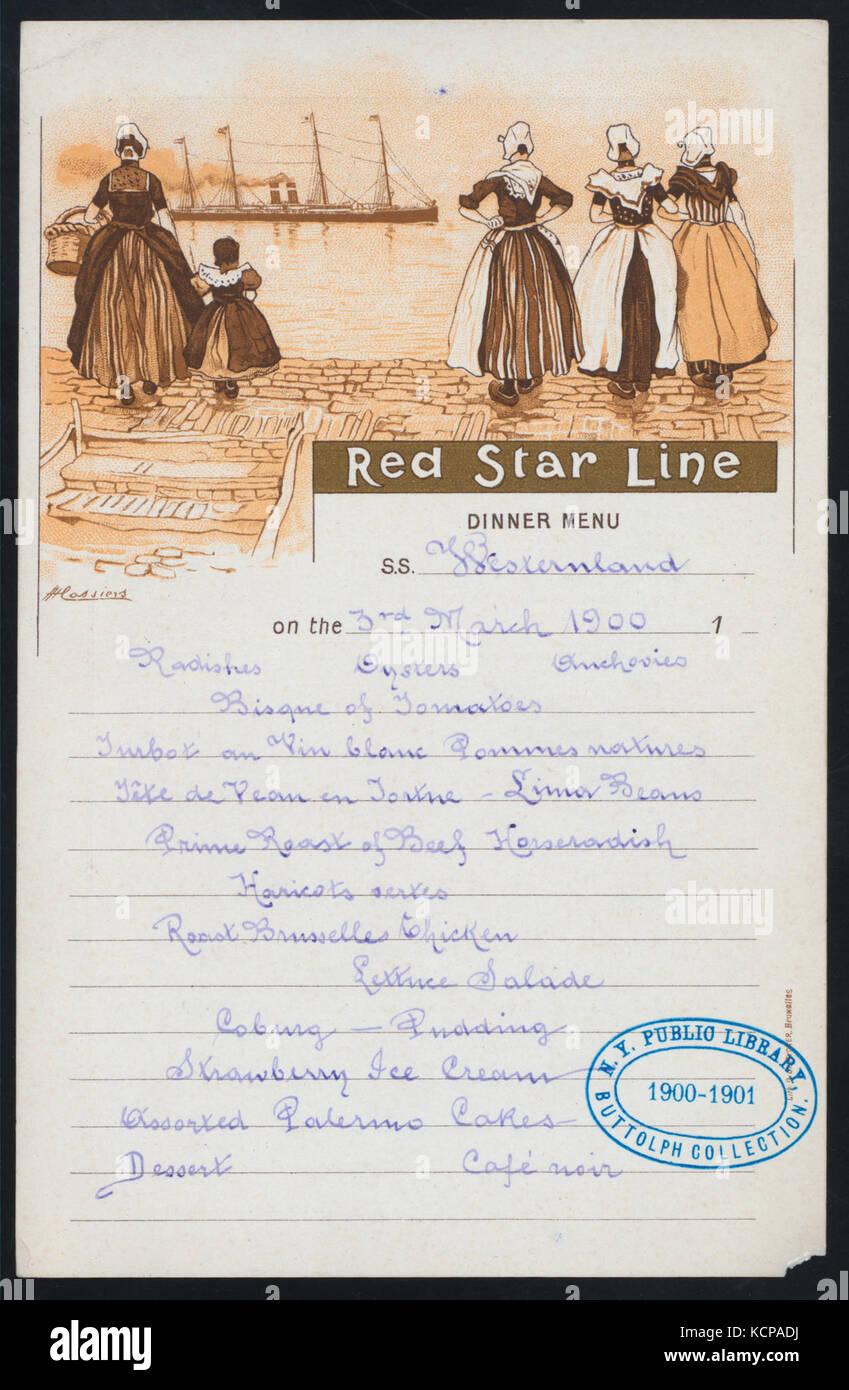 Red Star Line
DINNER MENU
S.S. Westernland
on the 3rd March 1900 1
HCassiers
Radishes Oysters Anchovies
Bisque of Tomatoes
Turbot au Vin blanc Pommes natures
Tête de Veau en Tortue - Lima Beans
Prime Roast of Beef Horseradish
Haricots vertes
Roast Brusselles Chicken
Lettuce Salade
Coburg - Pudding
Strawberry Ice Cream
Assorted Palermo Cakes
Dessert Café noir
N. Y. PUBLIC LIBRARY,
1900-1901
BUTTOLPH COLLECTION.
Bruxelles
alamy
Image ID: KCPADJ
www.alamy.com